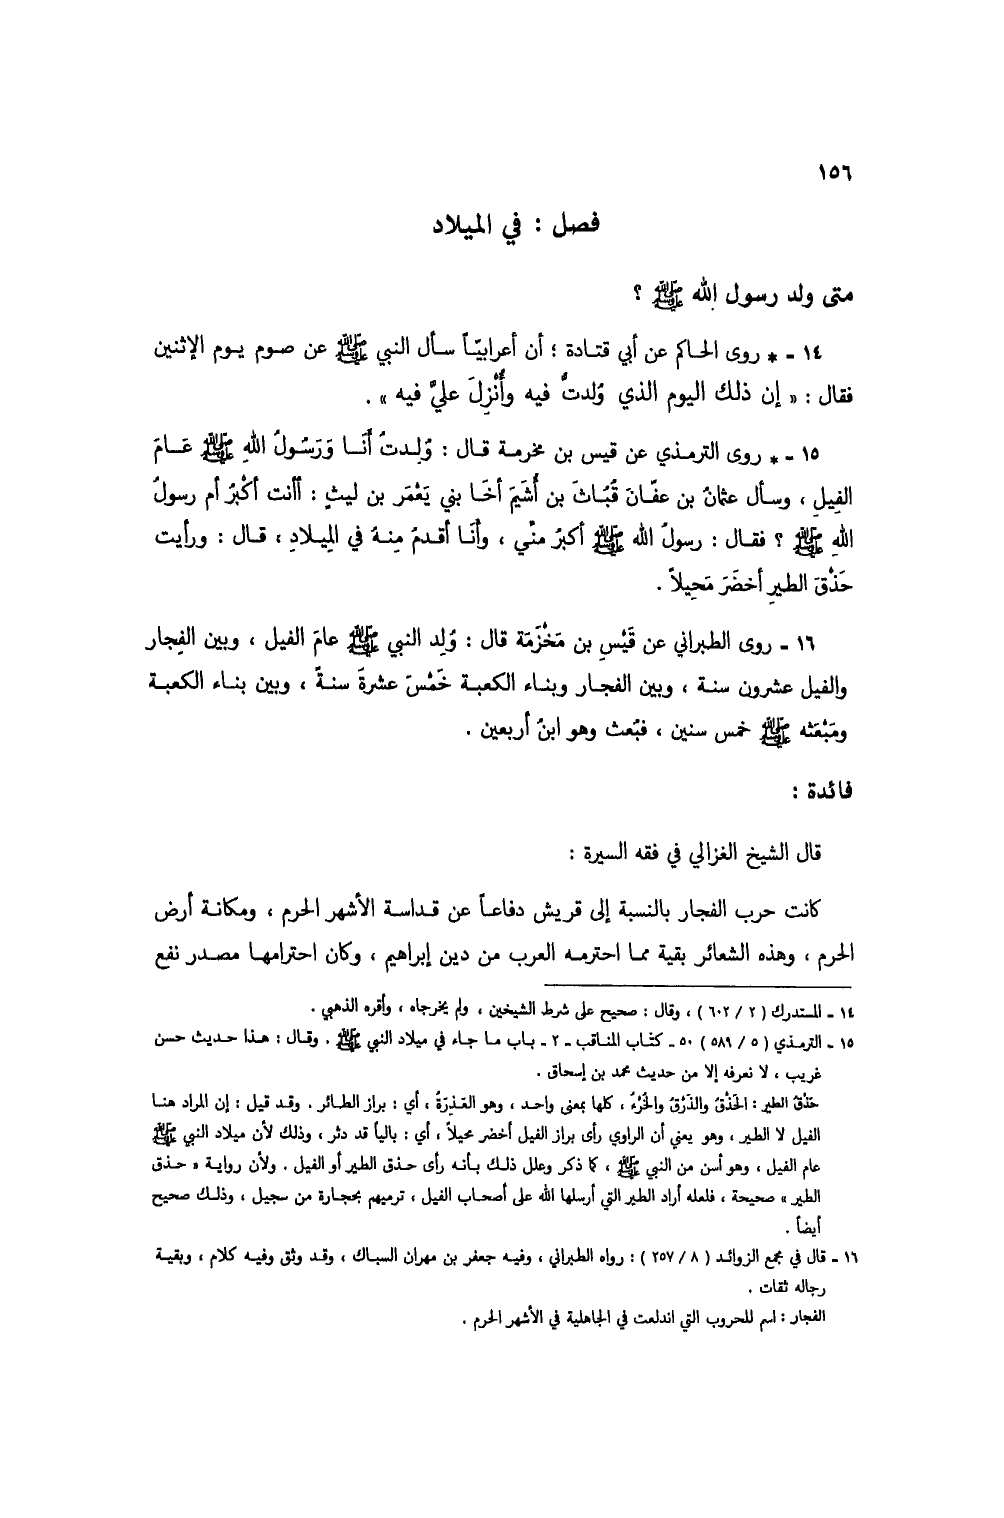 ١٥٦
فصل : في الميلاد
متى ولد رسول الله ﷺ ؟
١٤ - * روى الحاكم عن أبي قتادة ؛ أن أعرابيّاً سأل النبي ﷺ عن صوم يوم الإثنين
فقال : « إن ذلك اليوم الذي وُلدتُ فيه وأُنْزِلَ عليَّ فيه » .
١٥ - * روى الترمذي عن قيس بن مخرمة قال : وُلِدتُ أَنَا وَرَسُولُ اللهِ ﷺ عَامَ
الفِيلِ ، وسأل عثمانُ بن عفّانَ قُبَاثَ بن أُشَيَم أخَا بني يَعْمَر بن ليثٍ : أأنت أكْبَرُ أم رسولُ
اللهِ ﷺ ؟ فقال : رسولُ الله ﷺ أكبرُ منّي ، وأَنَا أقدمُ مِنهُ في المِيلادِ ، قال : ورأيت
حَذْقَ الطيرِ أخضَرَ مَحِيلاً .
١٦ - روى الطبراني عن قَيْسِ بن مَخْرَمَة قال : وُلِد النبي ﷺ عامَ الفيل ، وبين الفِجار
والفيل عشرون سنة ، وبين الفجار وبناء الكعبة خَمْسَ عشرةَ سنةً ، وبين بناء الكعبة
ومَبْعَثه ﷺ خمس سنين ، فبُعث وهو ابنُ أربعين .
فائدة :
قال الشيخ الغزالي في فقه السيرة :
كانت حرب الفجار بالنسبة إلى قريش دفاعاً عن قداسة الأشهر الحرم ، ومكانة أرض
الحرم ، وهذه الشعائر بقية مما احترمه العرب من دين إبراهيم ، وكان احترامها مصدر نفع
١٤ - المستدرك ( ٢ / ٦٠٢ ) ، وقال : صحيح على شرط الشيخين ، ولم يخرجاه ، وأقره الذهبي .
١٥ - الترمذي ( ٥ / ٥٨٩ ) ٥٠ - كتاب المناقب - ٢ - باب ما جاء في ميلاد النبي ﷺ . وقال : هذا حديث حسن
غريب ، لا نعرفه إلا من حديث محمد بن إسحاق .
حَذْقُ الطير : الحَذْقُ والذَرْقُ والخَرْءُ ، كلها بمعنى واحد ، وهو العَذِرَةُ ، أي : براز الطائر . وقد قيل : إن المراد هنا
الفيل لا الطير ، وهو يعني أن الراوي رأى براز الفيل أخضر محيلاً ، أي : بالياً قد دثر ، وذلك لأن ميلاد النبي ﷺ
عام الفيل ، وهو أسن من النبي ﷺ ، كما ذكر وعلل ذلك بأنه رأى حذق الطير أو الفيل . ولأن رواية « حذق
الطير » صحيحة ، فلعله أراد الطير التي أرسلها الله على أصحاب الفيل ، ترميهم بحجارة من سجيل ، وذلك صحيح
أيضاً .
١٦ - قال في مجمع الزوائد ( ٨ / ٢٥٧ ) : رواه الطبراني ، وفيه جعفر بن مهران السباك ، وقد وثق وفيه كلام ، وبقية
رجاله ثقات .
الفجار : اسم للحروب التي اندلعت في الجاهلية في الأشهر الحرم .